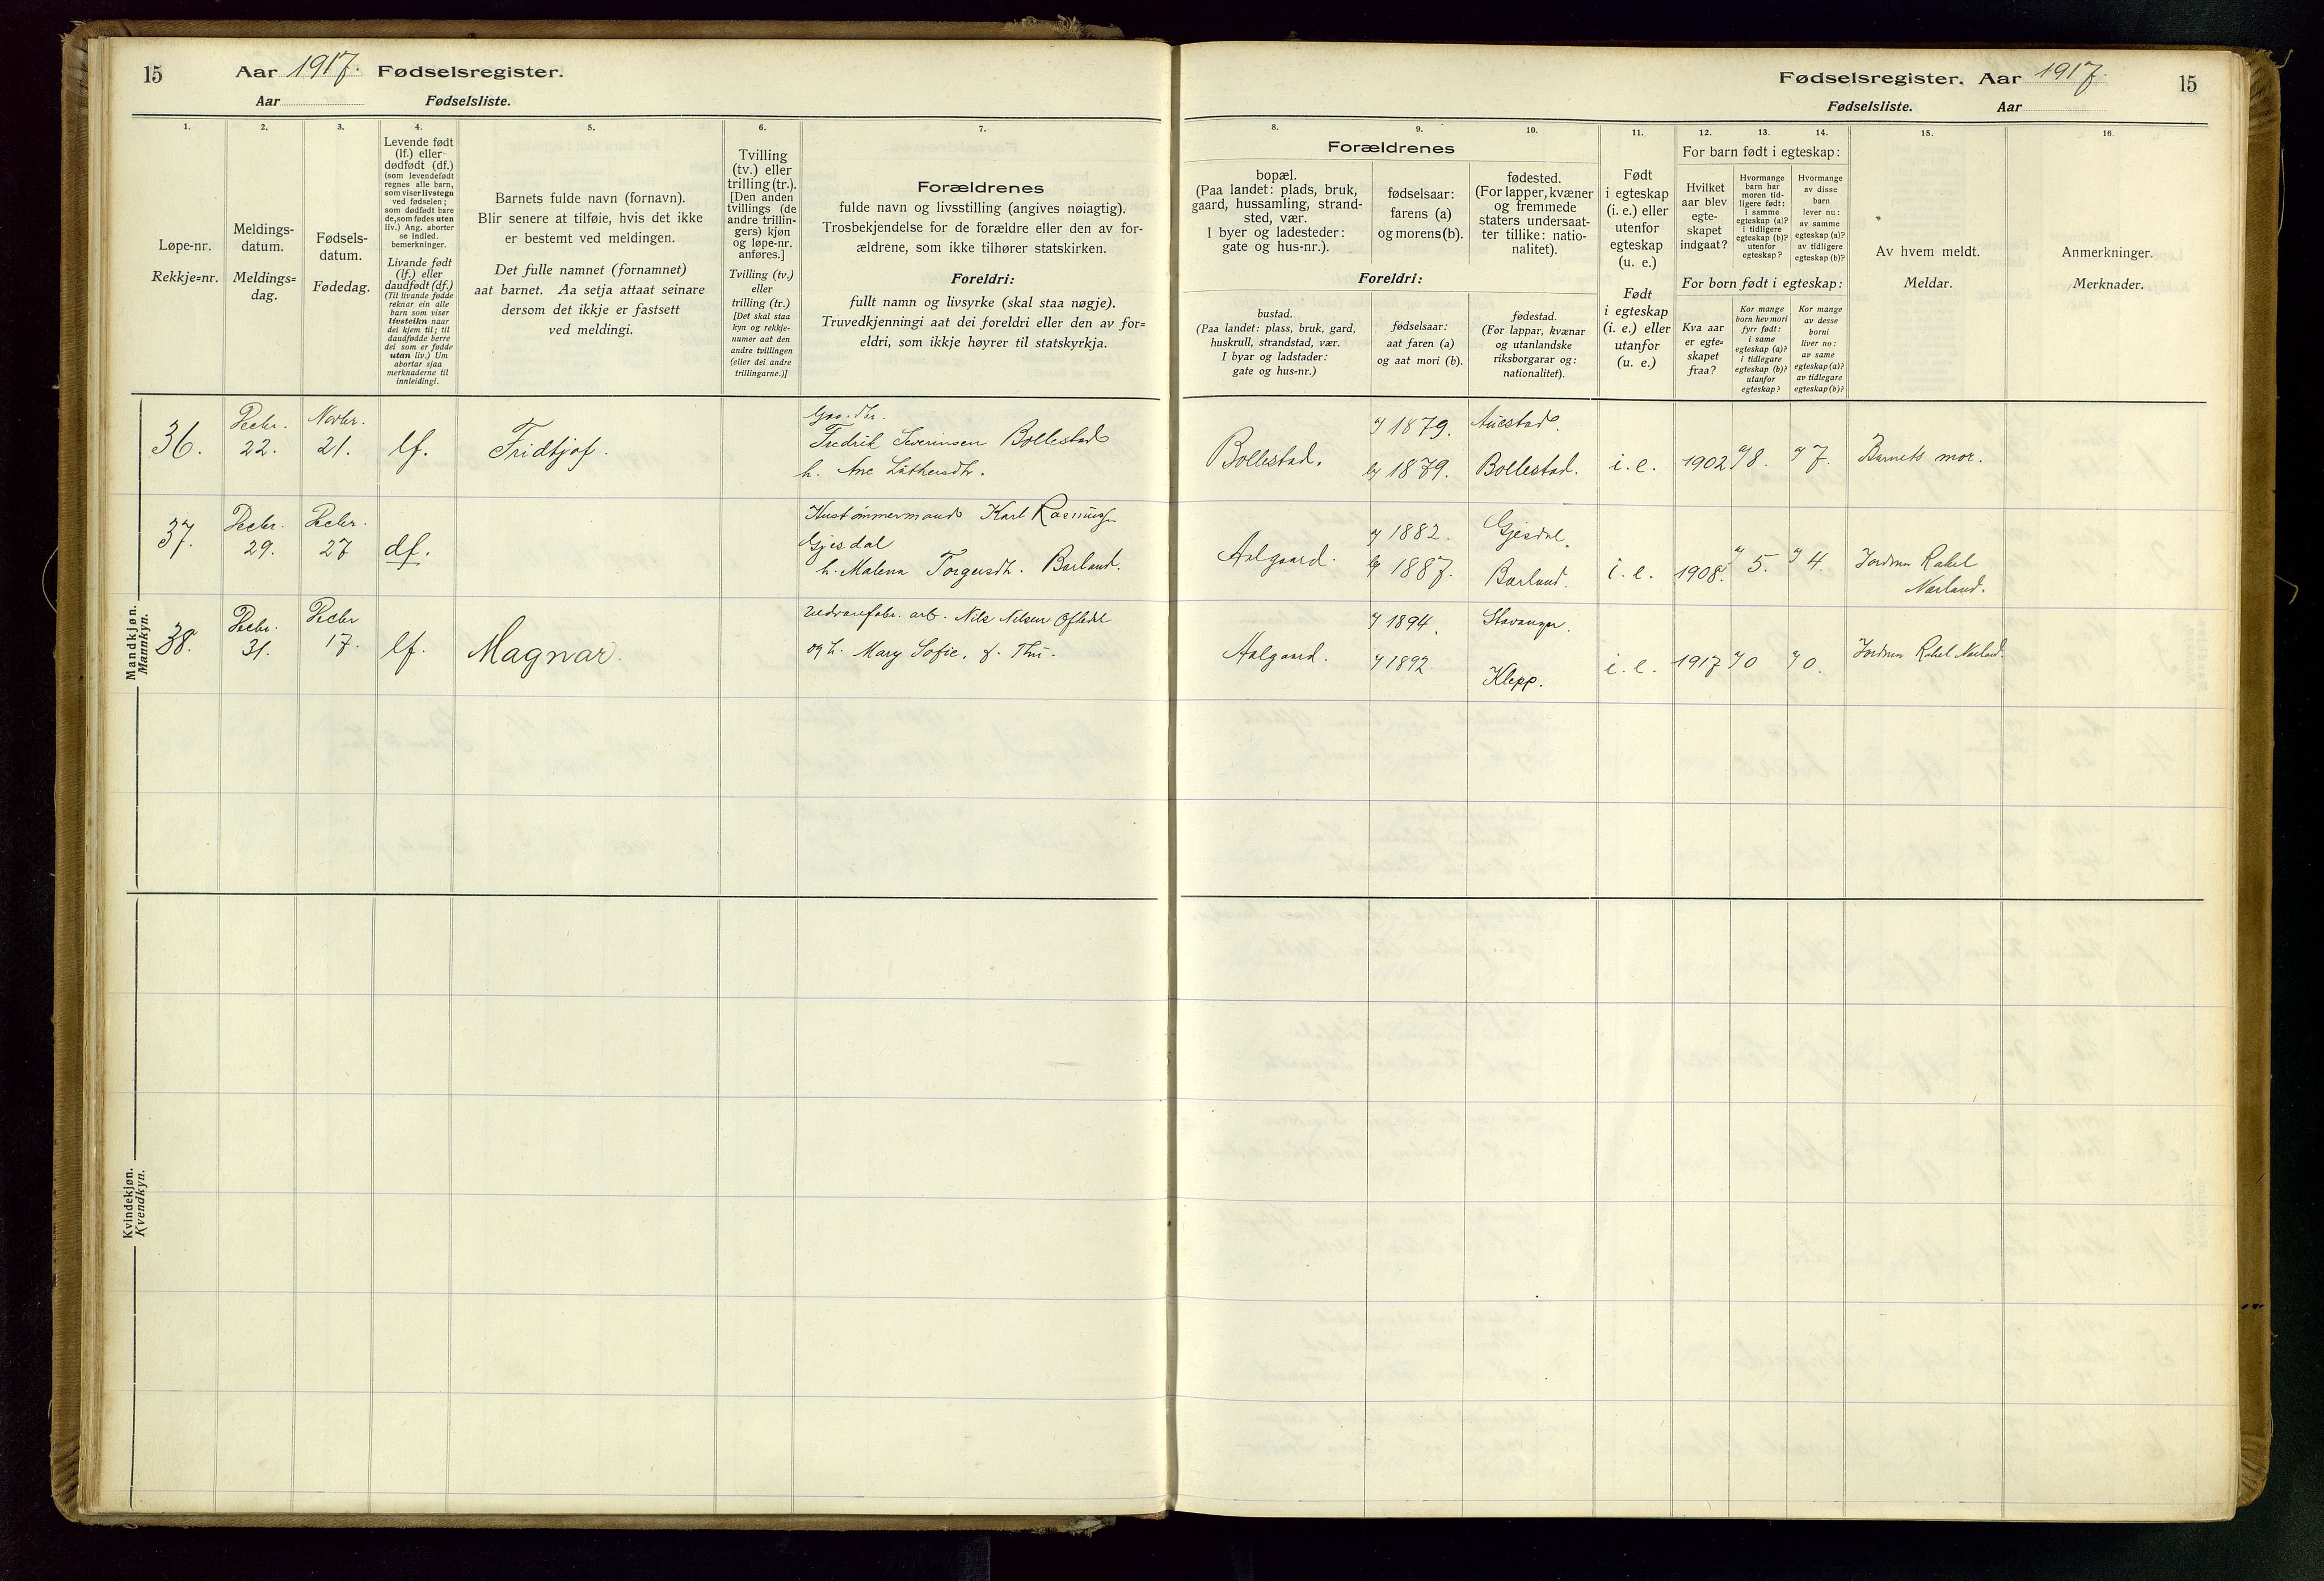 15 Aar 1917. Fødselsregister.
Aar Fødselsliste.
1. 2. 3. 4. 5. 6. 7.
Løpe-nr.
Rekkje=nr.
Meldings-
datum.
Meldings=
dag.
Fødsels-
datum.
Fødedag.
Levende født
(lf.) eller
dødfødt (df.)
(som levendefødt
regnes alle barn,
som viser livstegn
ved fødselen;
som dødfødt bare
de, som fødes uten
liv.) Ang. aborter
se indled.
bemerkninger.
Livande født
(lf.) eller
daudfødt (df.)
(Til livande fødde
reknar ein alle
barn som viser
livsteikn naar
dei kjem til; til
daudfødde berre
dei som er fødde
utan liv.) Um
abortar sjaa
merknaderne til
innleidingi.
Barnets fulde navn (fornavn).
Blir senere at tilføie, hvis det ikke
er bestemt ved meldingen.
Det fulle namnet (fornamnet)
aat barnet. Aa setja attaat seinare
dersom det ikkje er fastsett
ved meldingi.
Tvilling
(tv.) eller
trilling (tr.).
[Den anden
tvillings (de
andre trillin-
gers) kjøn
og løpe-nr.
anføres.]
Tvilling (tv.)
eller
trilling (tr.)
[Det skal staa
kyn og rekkje-
numer aat den
andre tvillingen
(eller dei andre
trillingarne.)]
Forældrenes
fulde navn og livsstilling (angives nøiagtig).
Trosbekjendelse for de forældre eller den av for-
ældrene, som ikke tilhører statskirken.
Foreldri:
fullt namn og livsyrke (skal staa nøgje).
Truvedkjenningi aat dei foreldri eller den av for=
eldri, som ikkje høyrer til statskyrkja.
Mandkjøn.
Mannkyn.
36. Decbr. 22. Novbr. 21. lf. Fridtjof.
Fredrik Severinsen Bollestad
h. Ane
37. Decbr. 29. Decbr. 27 df.
Karl
Gjesdal
h. Malena Torgersdt. Borland.
38. Decbr. 31. Decbr 17. lf. Magnar.
arb. Nils Nilsen Oftedal
og h. Mary Sofie, f. Thu.
Kvindekjøn.
Kvendkyn.
Fødselsregister. Aar 1917. 15
Fødselsliste. Aar
8. 9. 10. 11. 12. 13. 14. 15. 16.
Forældrenes
bopæl.
(Paa landet: plads, bruk,
gaard, hussamling, strand-
sted, vær.
I byer og ladesteder:
gate og hus-nr.).
fødselsaar:
farens (a)
og morens (b).
fødested.
(For lapper, kvæner
og fremmede
staters undersaat-
ter tillike: natio-
nalitet).
Foreldri:
bustad.
(Paa landet: plass, bruk, gard,
huskrull, strandstad, vær.
I byar og ladstader:
gate og hus=nr.)
fødselsaar:
aat faren (a)
og aat mori (b).
fødestad.
(For lappar, kvænar
og utanlandske
riksborgarar og:
nationalitet).
Født
i egteskap
(i. e.) eller
utenfor
egteskap
(u. e.)
Født
i egteskap
(i. e.) eller
utanfor
(u. e.)
For barn født i egteskap:
Hvilket
aar blev
egte-
skapet
indgaat?
Hvormange
barn har
moren tid-
ligere født:
i samme
egteskap (a)?
i tidligere
egteskap (b)?
utenfor
egteskap?
Hvormange
av disse
barn
lever nu:
av samme
egteskap (a)?
av tidligere
egteskap (b)?
For born født i egteskap:
Kva aar
er egte=
skapet
fraa?
Kor mange
born hev mori
fyrr født:
i same
egteskap (a)?
i tidlegare
egteskap (b)?
utanfor
egteskap?
Kor mange
av desse
borni
liver no:
av same
egteskap (a)?
av tidlegare
egteskap (b)?
Av hvem meldt.
Meldar.
Anmerkninger.
Merknader.
a) 1879. Auestad.
Bollestad. b) 1879. Bollestad. i. e. 1902 a) 8. a) 7. Barnets mor.
a) 1882. Gjesdal.
Aalgaard. b) 1887. Borland. i. e. 1908. a) 5. a) 4. Jordmor Rakel
Nærland.
a) 1894. Stavanger.
Aalgaard. 1892. Klepp. i. e. 1917 a) 0 a) 0. Jordmor Rakel Nærland.